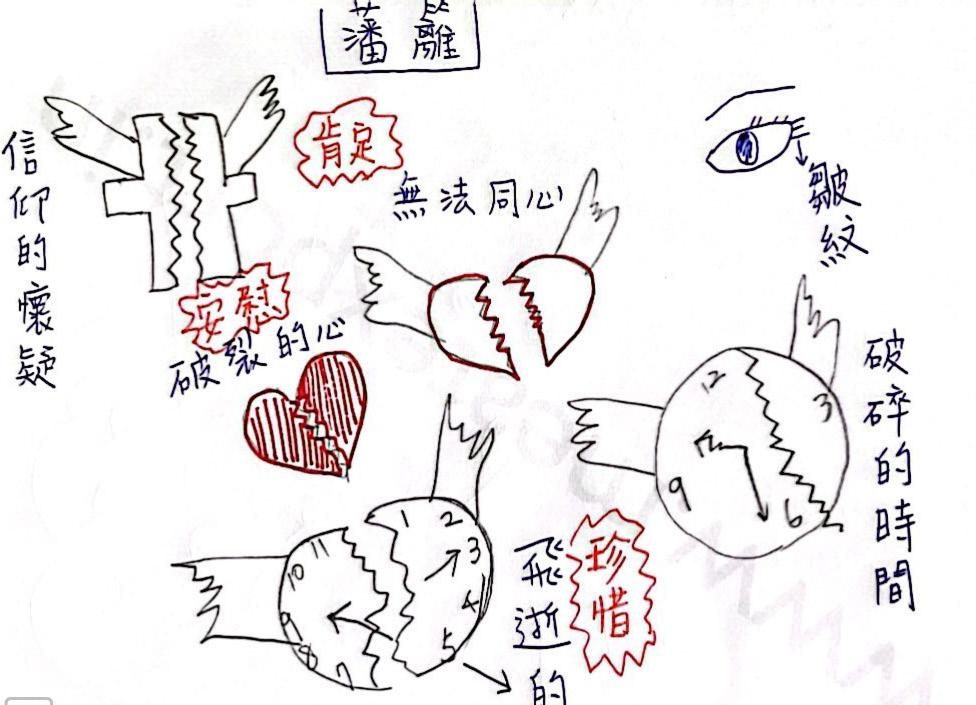 藩離
信仰的懷疑
肯定
無法同心
皺紋
安慰
破裂的心
破碎的時間
12
3
6
9
飛逝的
珍惜
1
2
3
4
5
7
8
9
10
11